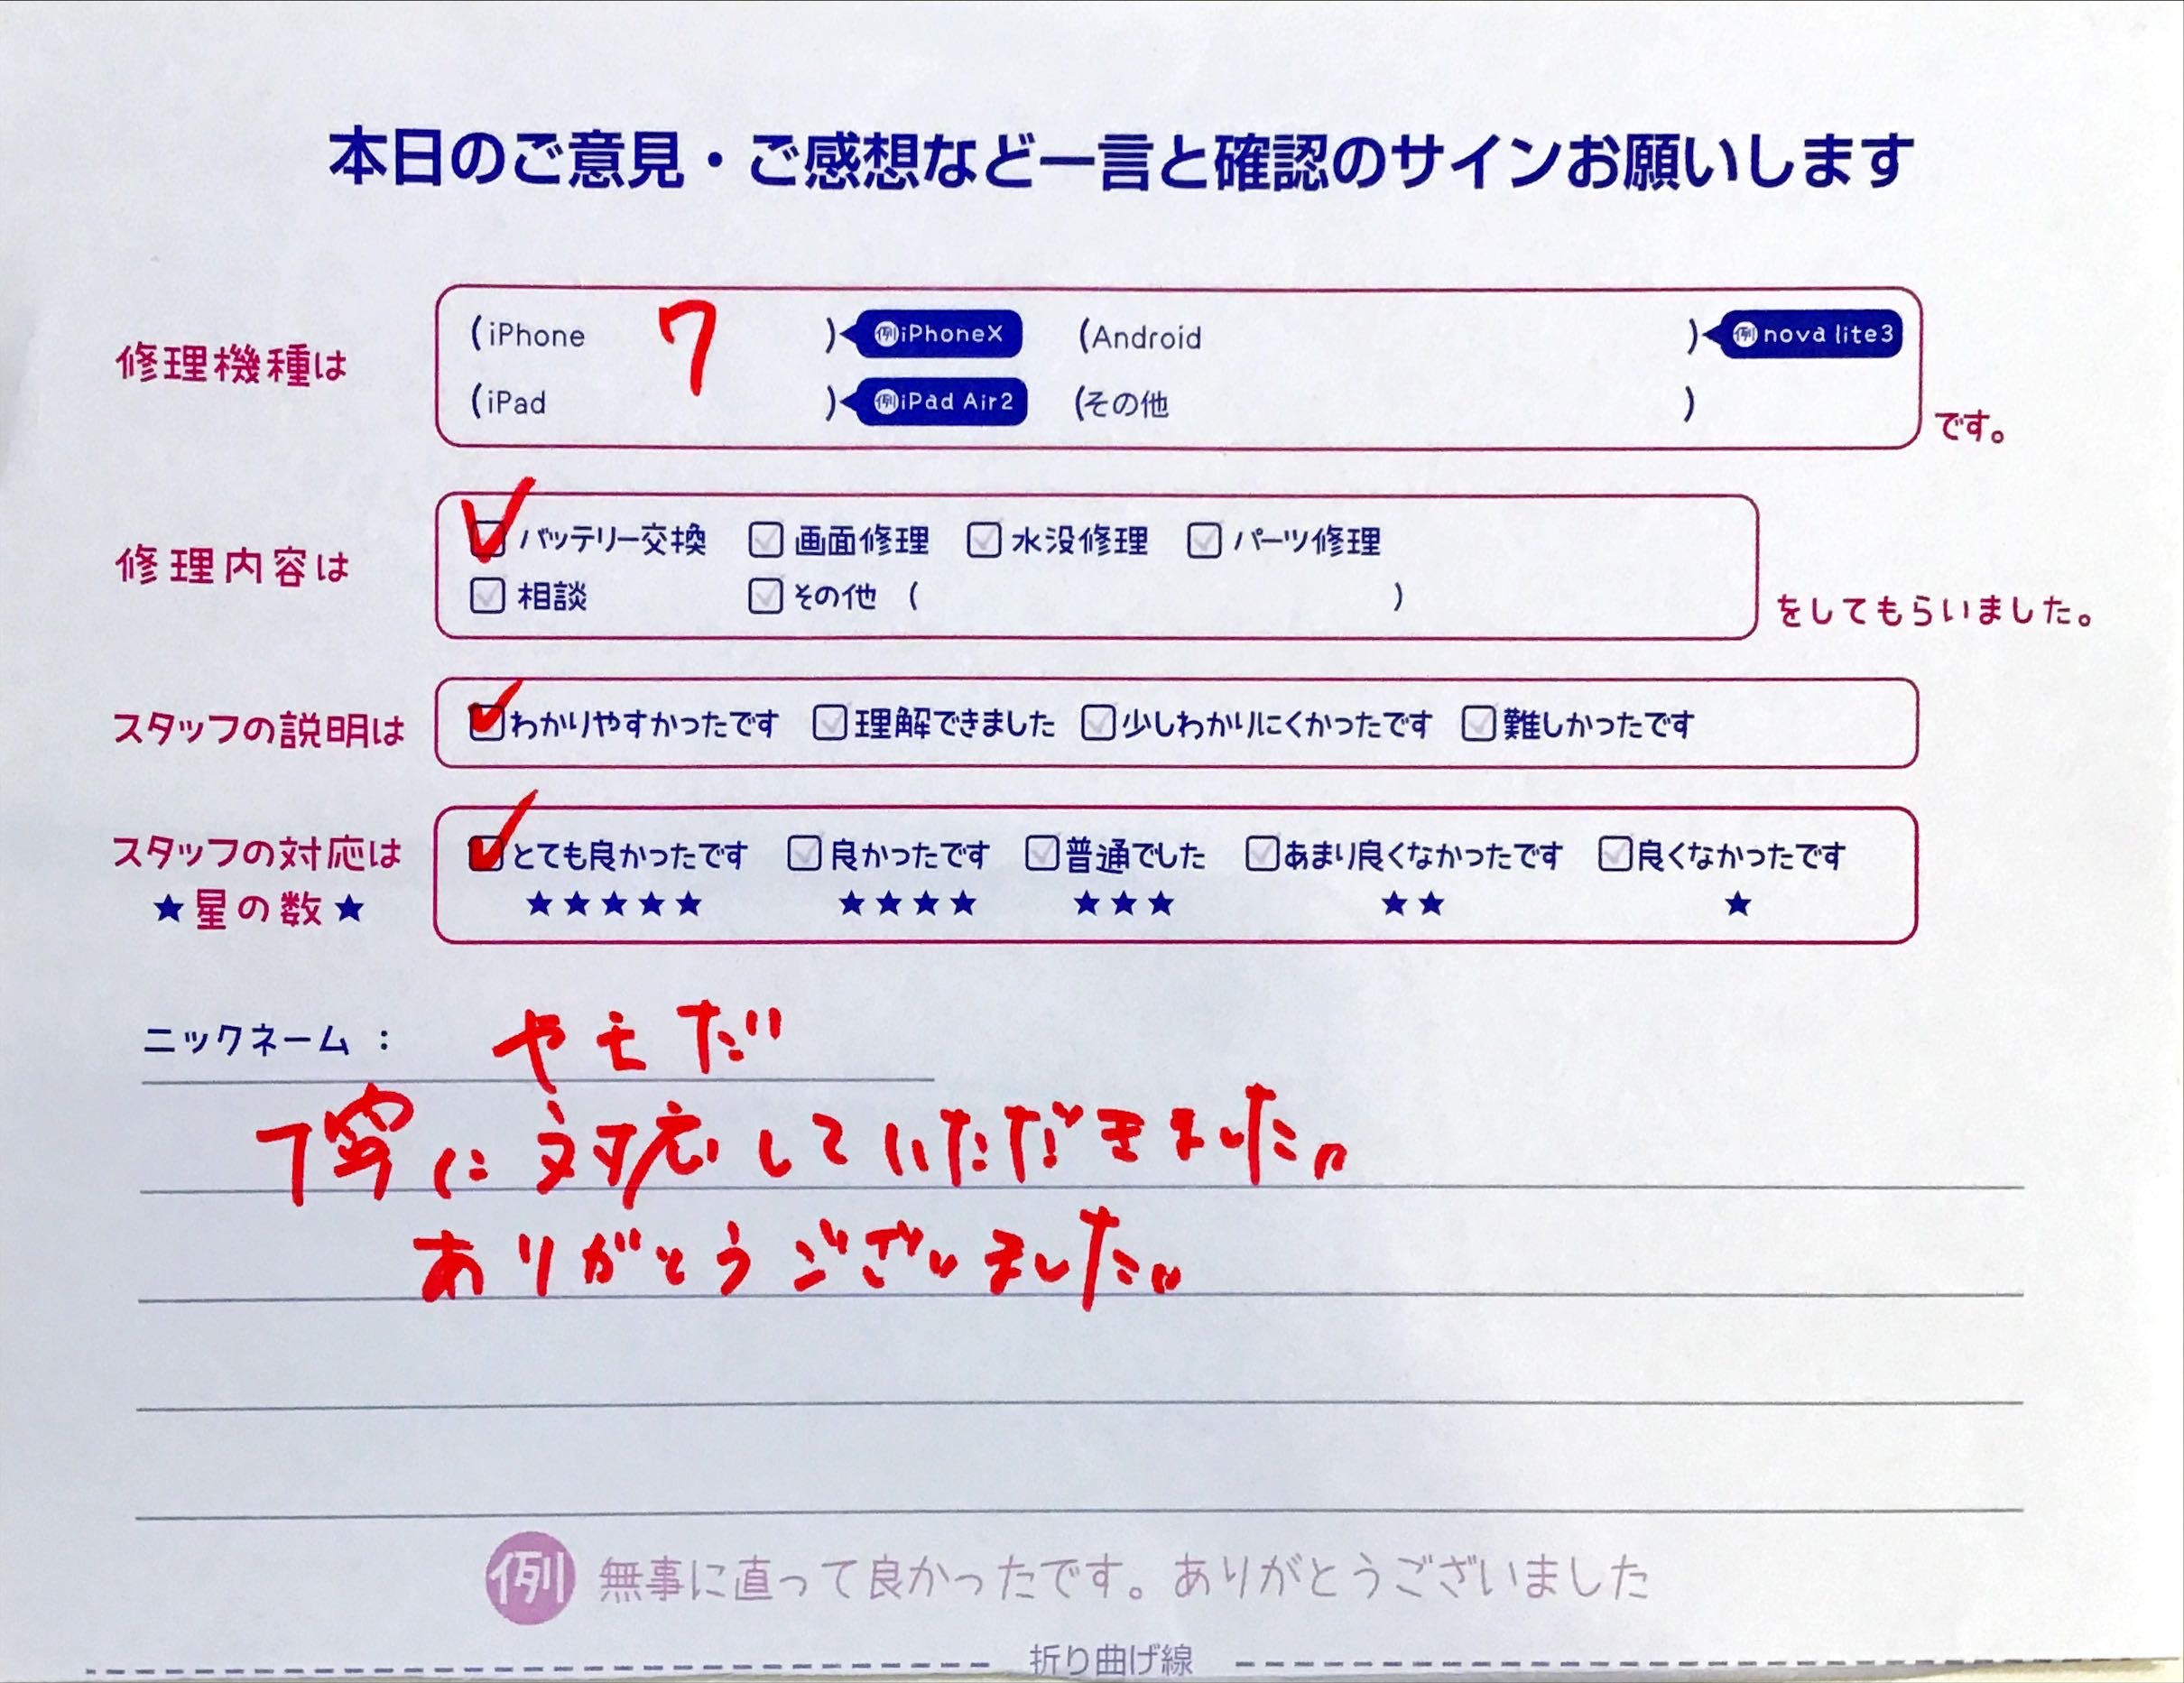 本日のご意見・ご感想など一言と確認のサインお願いします
修理機種は
(iPhone 7 ) 例iPhoneX (Android ) 例nova lite3
(iPad ) 例iPad Air2 (その他 )
です。
修理内容は
バッテリー交換 画面修理 水没修理 パーツ修理
相談 その他 ( )
をしてもらいました。
スタッフの説明は
わかりやすかったです 理解できました 少しわかりにくかったです 難しかったです
スタッフの対応は
★星の数★
とても良かったです 良かったです 普通でした あまり良くなかったです 良くなかったです
★★★★★ ★★★★ ★★★ ★★ ★
ニックネーム : やモだ
丁寧に対応していただきました。
ありがとうございました。
例 無事に直って良かったです。ありがとうございました
折り曲げ線